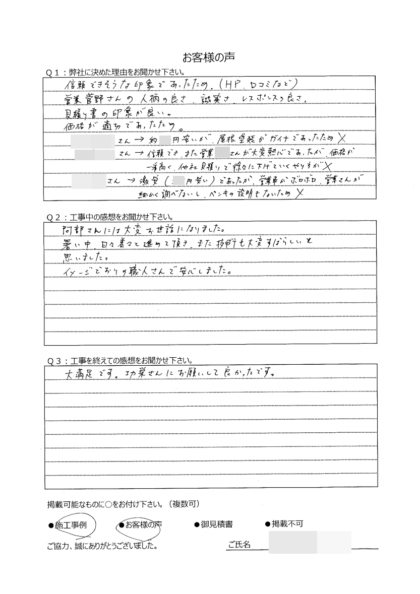 お客様の声
Q1：弊社に決めた理由をお聞かせ下さい。
信頼できそうな印象であったため。(HP、口コミなど)
営業菅野さんの人柄の良さ、誠実さ、レスポンスの良さ。
見積り書の印象が良い。
価格が適切であったため。
さん → 約 円安いが、屋根塗装がガイナであったため×
さん → 信頼でき、また営業 さんが大変熱心であったが、価格が
一番高く、他社見積りで
さん → 激安( 円安い)であったが、営業車がボロボロ、営業さんが
細かく調べないし、ペンキの説明もないため×
Q2：工事中の感想をお聞かせ下さい。
阿部さんには大変お世話になりました。
暑い中、日々着々と進めて頂き、また技術も大変すばらしいと
思いました。
イメージどおりの職人さんで安心しました。
Q3：工事を終えての感想をお聞かせ下さい。
大満足です。功栄さんにお願いして良かったです。
掲載可能なものに○をお付け下さい。（複数可）
●施工事例 ●お客様の声 ●御見積書 ●掲載不可
ご協力、誠にありがとうございました。 ご氏名